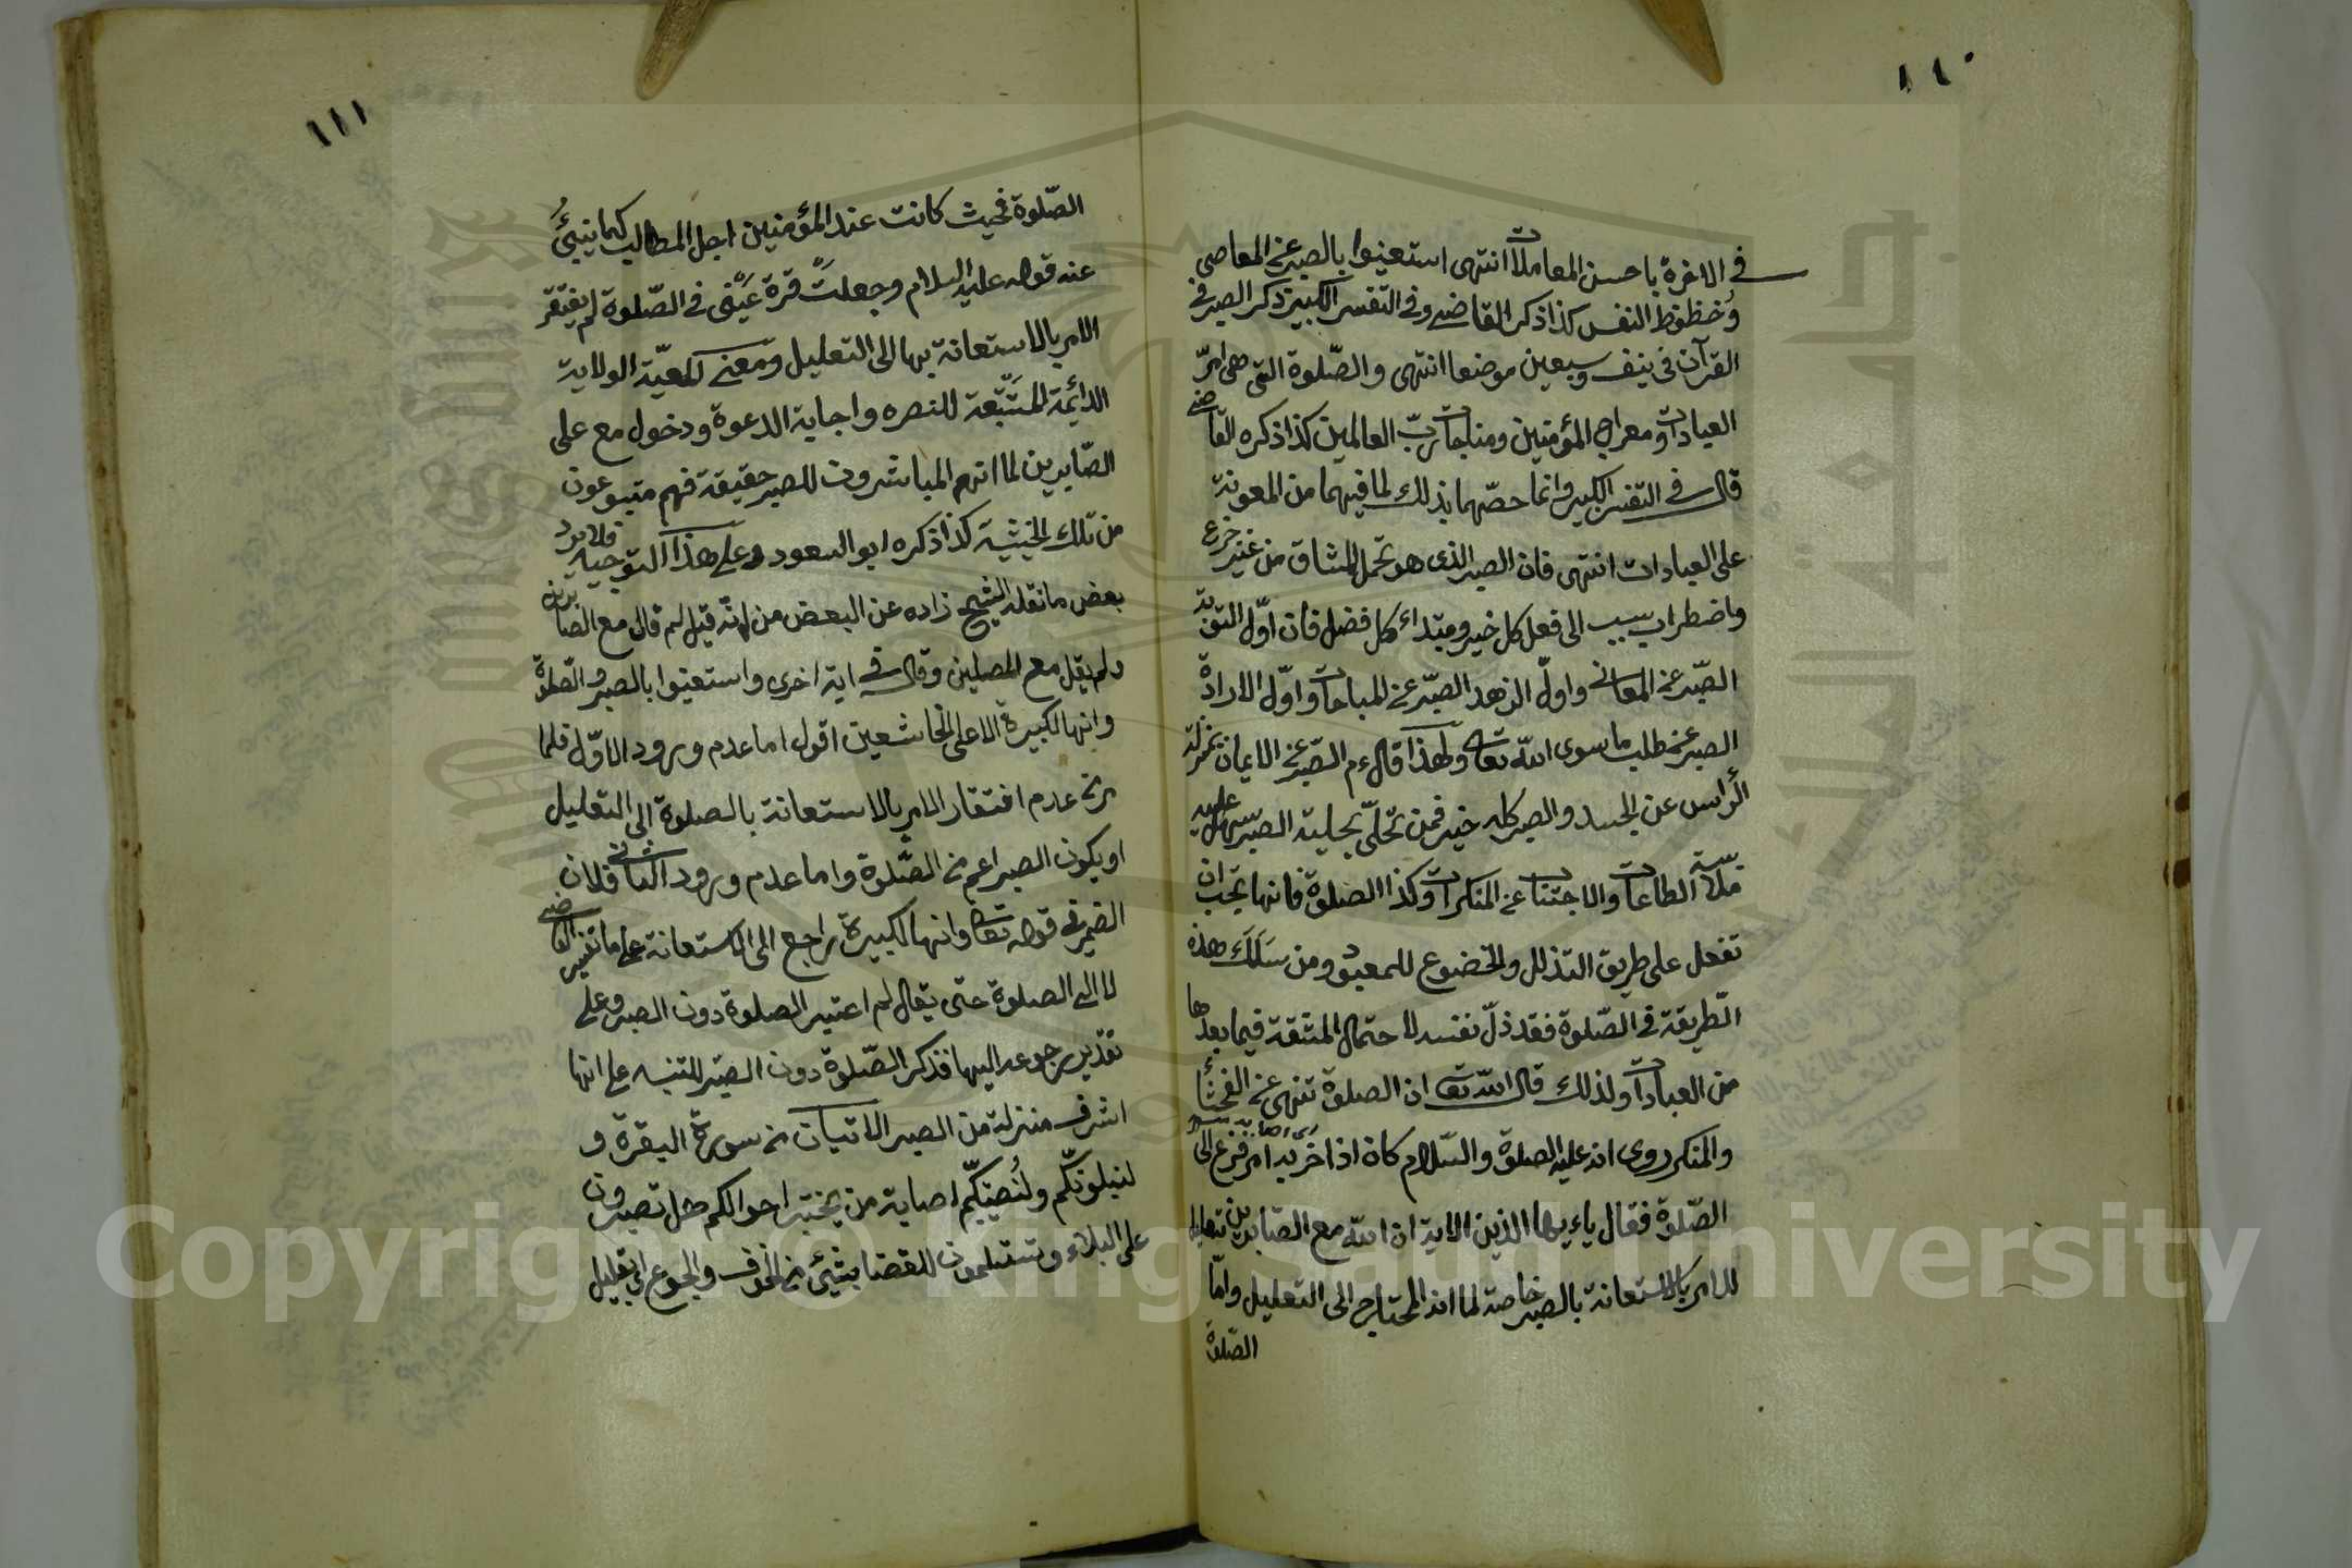 ١١٠
في الاخرة باحسن المعاملات انتهى استعينوا بالصبر عن المعاصي
وحظوظ النفس كذا ذكر القاضي وفي التفسر الكبير ذكر الصبر في
القرآن في نيف وسبعين موضعا انتهى والصّلوة التي هي امّ
العبادات ومعراج المؤمنين ومناجات ربّ العالمين كذا ذكره القاضي
قال في التفسر الكبير وانما خصّهما بذلك لما فيهما من المعونة
على العبادات انتهى فان الصبر الذي هو تحمل المشاق من غير جزع
واضطراب سبب الى فعل كل خير ومبتداء كل فضل فان اوّل التوبة
الصّبر عن المعاصي واولّ الزهد الصبّر عن المباحات واوّل الارادة
الصبر عن طلب ما سوى الله تعالى ولهذا قال عم الصّبر من الايمان بمنزلة
الرأس عن الجسد والصبر كله خير فمن تحلّى بحلية الصبر سهل عليه
ملابسة الطاعات والاجتناب عن المنكرات وكذا الصلوة فانها تجب ان
تفعل على طريق التذلل والخضوع للمعبود ومن سَلَكَ هذه
الطّريقة في الصّلوة فقد ذلّ نفسه لاحتمال المشقة فيما بعدها
من العبادات ولذلك قال الله تعا ان الصلوة تنهى عن الفحشأ
والمنكر روى انه عليه الصلوة والسّلام كان اذا حزبه امر فزع الى
الصّلوة فقال ياءيها الذين الاية ان الله مع الصّابرين تعليل
للامر بالاستعانة بالصبر خاصة لما انه المحتاج الى التعليل وامّا
الصّلوة
١١١
الصّلوة فحيث كانت عند المؤمنين اجل المطالب كما ينبئُ
عنه قوله عليه السلام وجعلت قرة عَيْنى في الصّلوة لم يفتقر
الامر بالاستعانة بها الى التعليل ومعنى المعيّة الولاية
الدائمة المستتبعة للنصره واجابة الدعوة ودخول مع على
الصّابرين لما انهم المباشرون للصبر حقيقة فهم متبوعون
من تلك الحيثية كذا ذكره ابو السعود وعلى هذا التوجيه فلا يرد
بعض ما نقله الشيخ زاده عن البعض من انّه قيل لم قال مع الصابرين
ولم يقل مع المصلين وقال في اية اخرى واستعينوا بالصبر والصّلوة
وانها لكبيرة الا على الخاشعين اقول اما عدم ورود الاوّل فلما
مرّ من عدم افتقار الامر بالاستعانة بالصلوة الى التعليل
او يكون الصبر اعم من الصّلوة واما عدم ورود الثاني فلان
الضمير في قوله تعا وانها لكبيرة راجع الى الاستعانة على ما تفسير القاضي
لا الى الصلوة حتى يقال لم اعتبر الصلوة دون الصبر وعلى
تقدير رجوعه اليها فذكر الصّلوة دون الصبر للتنبيه على انها
اشرف منزلة من الصبر الاتيان من سورة البقرة و
لنبلونّكم ولنُصيبنّكم اصابة من يختبر احوالكم هل تصبرون
على البلاء وتستسلمون للقضا بشئ من الخوف والجوع اى بقليل
Copyright © King Saud University